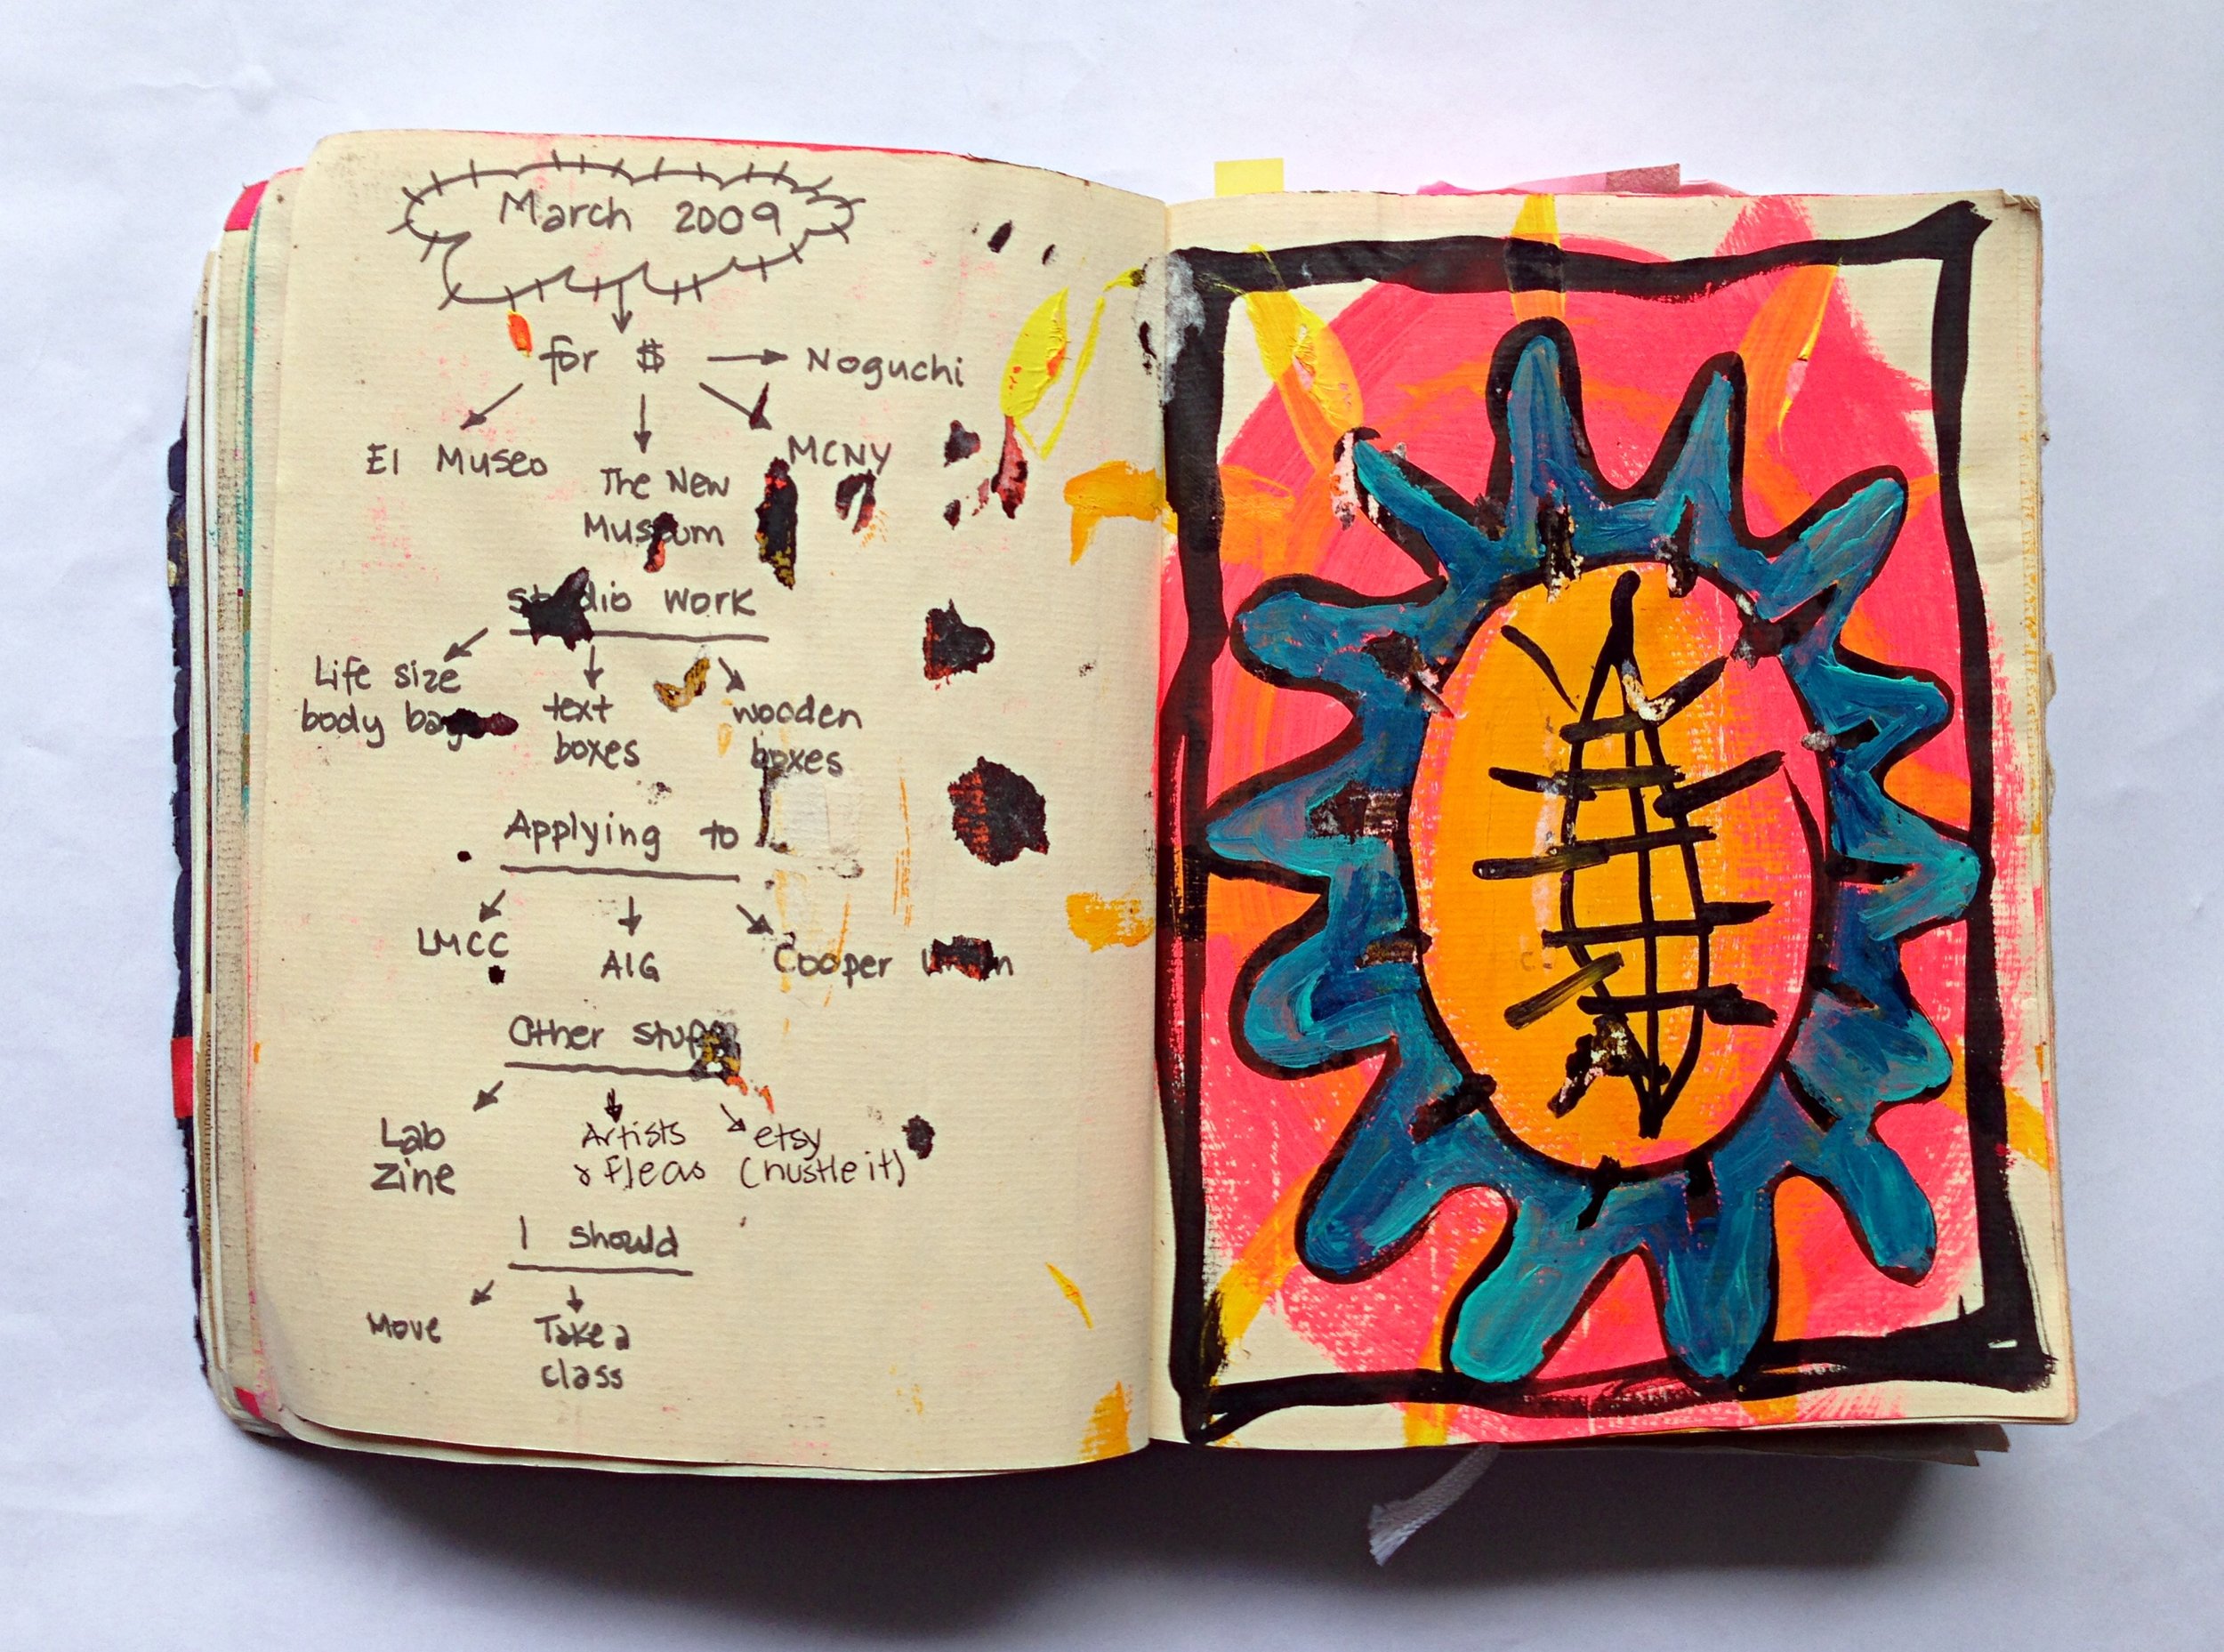 March 2009
for $ Noguchi
El Museo
The New
Museum
MCNY
Studio work
Life size
body bags
text
boxes
wooden
boxes
Applying to
LMCC
AIG
Cooper Union
Other stuff
Lab
zine
Artists
& fleas
etsy
(hustle it)
I should
Move
Take a
class